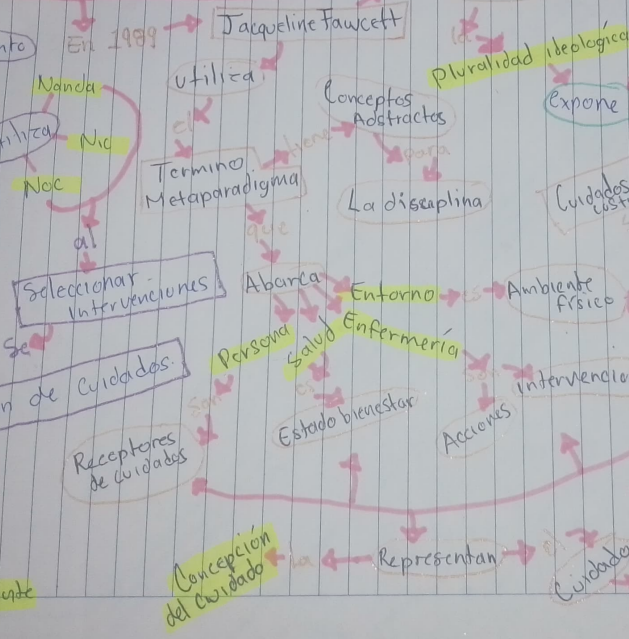 En 1989
Jacqueline Fawcett
Utiliza
el
Termino
Metaparadigma
tiene
Conceptos
Abstractos
para
La disciplina
Pluralidad ideológica
expone
Nanda
Nic
Noc
al
Seleccionar
Intervenciones
Se
de cuidados.
que
Abarca
Entorno
es
Ambiente
físico
Persona
Salud
Enfermería
son
Receptores
de cuidados
es
Estado bienestar
son
Acciones
Cuidados
Representan
la
Concepción
del cuidado
el
Cuidado